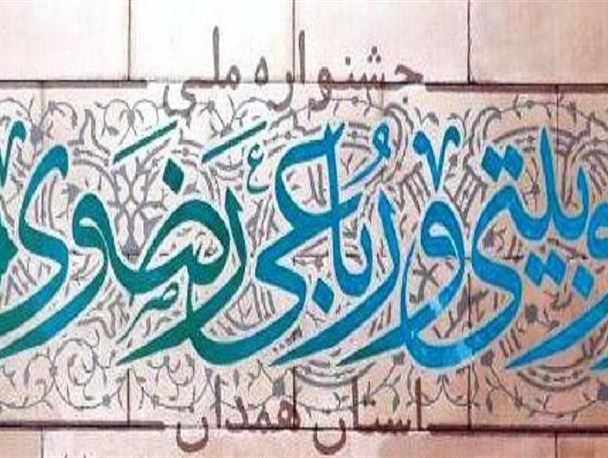 جشنواره ملی
وبیتی و رباعی رضوی
استان همدان